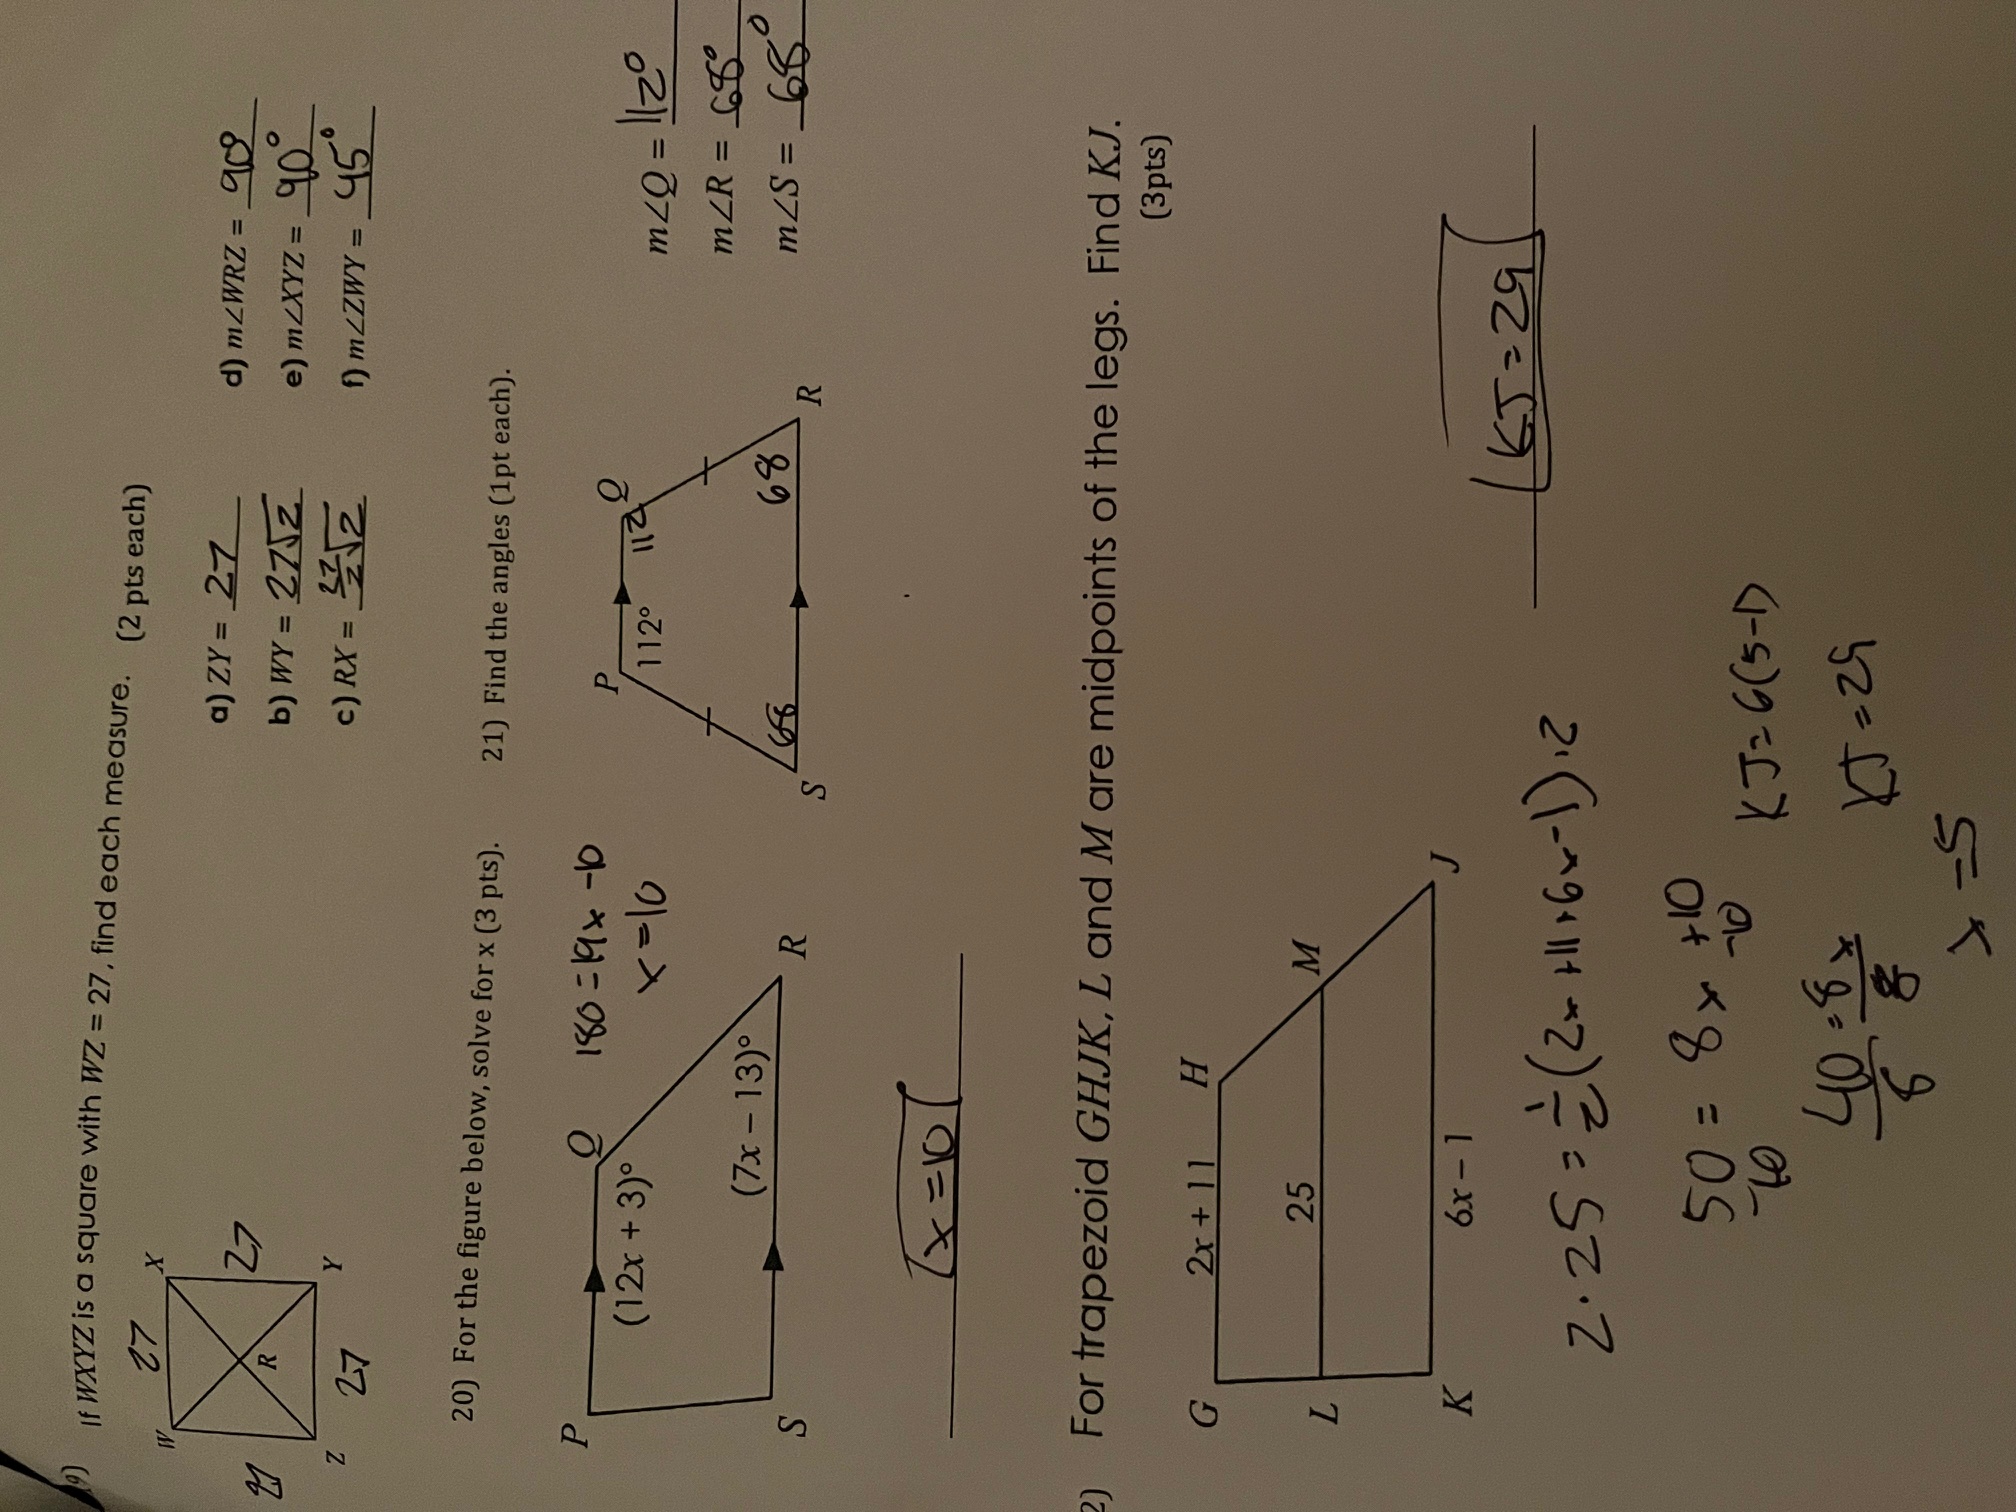 9) If WXYZ is a square with WZ = 27, find each measure. (2 pts each)
27
W X
27
27
R
Z Y
27
a) ZY = 27
b) WY = 27√2
c) RX = 27/2 √2
d) m∠WRZ = 90°
e) m∠XYZ = 90°
f) m∠ZWY = 45°
20) For the figure below, solve for x (3 pts).
P Q
(12x + 3)°
(7x – 13)°
S R
180 = 19x - 10
x = 10
x = 10
21) Find the angles (1pt each).
P Q
112° 112
68 68
S R
m∠Q = 112°
m∠R = 68°
m∠S = 68°
2) For trapezoid GHJK, L and M are midpoints of the legs. Find KJ.
(3pts)
G 2x + 11 H
25
L M
K 6x – 1 J
KJ = 29
2·25 = 1/2 (2x + 11 + 6x - 1) · 2
50 = 8x + 10
-10 -10
40 = 8x
8 8
x = 5
KJ = 6(5-1)
KJ = 29